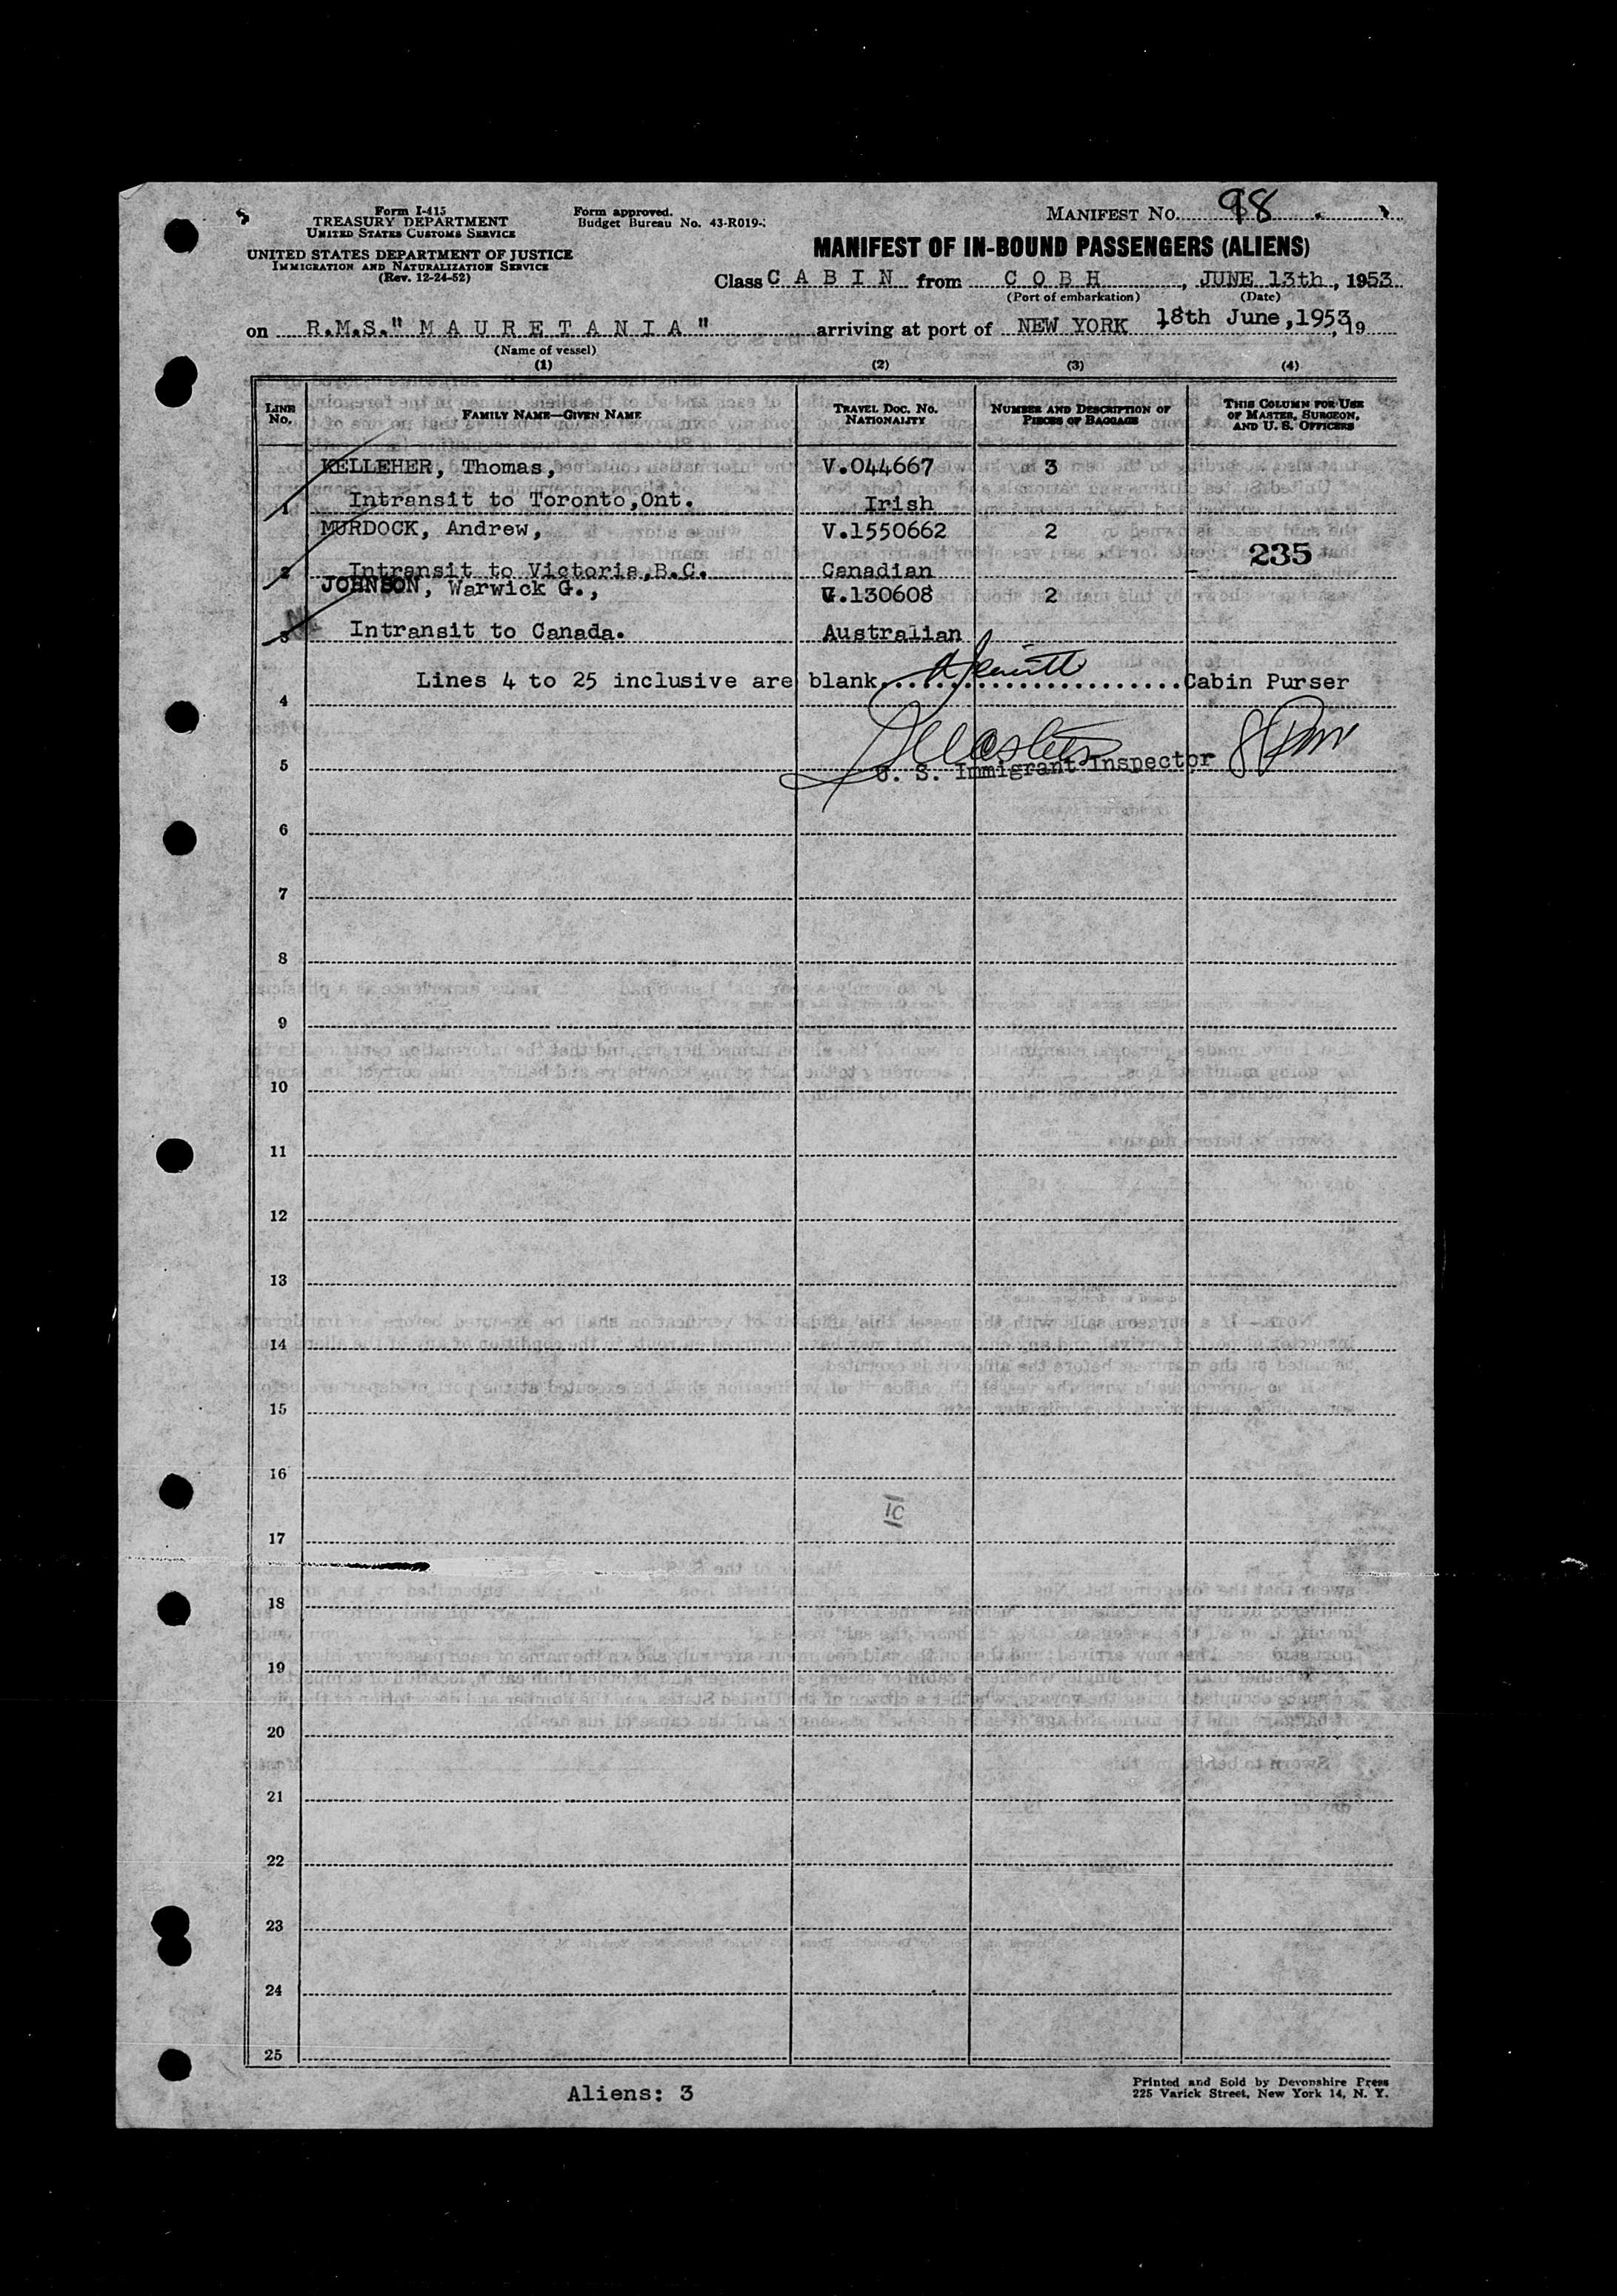 Form I-415
TREASURY DEPARTMENT
UNITED STATES CUSTOMS SERVICE
UNITED STATES DEPARTMENT OF JUSTICE
IMMIGRATION AND NATURALIZATION SERVICE
(Rev. 12-24-52)
Form approved.
Budget Bureau No. 43-R019-
MANIFEST NO. 98
MANIFEST OF IN-BOUND PASSENGERS (ALIENS)
Class C A B I N from C O B H, JUNE 13th, 1953
(Port of embarkation) (Date)
on R.M.S." M A U R E T A N I A " arriving at port of NEW YORK 18th June,1953, 19
(Name of vessel)
(1) (2) (3) (4)
LINE NO. FAMILY NAME—GIVEN NAME TRAVEL DOC. NO. NATIONALITY NUMBER AND DESCRIPTION OF PIECES OF BAGGAGE THIS COLUMN FOR USE OF MASTER, SURGEON, AND U. S. OFFICERS
KELLEHER, Thomas, V.044667 3
1 Intransit to Toronto,Ont. Irish
MURDOCK, Andrew, V.1550662 2
235
2 Intransit to Victoria,B.C. Canadian
JOHNSON, Warwick G., .130608 2
3 Intransit to Canada. Australian
Lines 4 to 25 inclusive are blank. Cabin Purser
4
5 U. S. Immigrant Inspector
6
7
8
9
10
11
12
13
14
15
16
10
17
18
19
20
21
22
23
24
25
Aliens: 3
Printed and Sold by Devonshire Press
225 Varick Street, New York 14, N. Y.